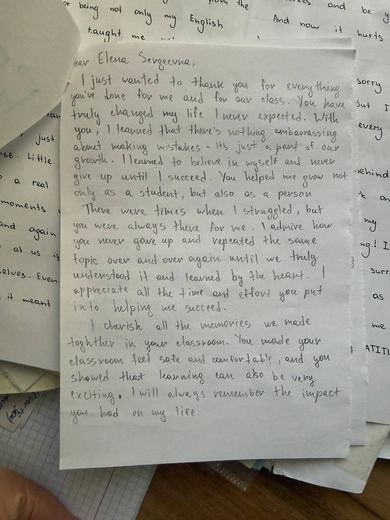 being not only my English
taught me
And now it hurts
ear Elena Sergeevna,
I just wanted to thank you for everything
you've done for me and for our class. You have
truly changed my life I never expected. With
you, I learned that there's nothing embarrassing
about making mistakes - its just a part of our
growth. I learned to believe in myself and never
give up until I succeed. You helped me grow not
only as a student, but also as a person
There were times when I struggled, but
you were always there for me. I admire how
you never gave up and repeated the same
topic over and over again until we truly
understood it and learned by the heart. I
appreciate all the time and effort you put
into helping me succeed.
I cherish all the memories we made
toghther in your classroom. You made your
classroom feel safe and comfortable, and you
showed that learning can also be very
exciting. I will always remember the impact
you had on my life.
just
Little
a real
moments
and again
at us
selves. Even
it meant
sorry
but I
behind
my
surr
as
me